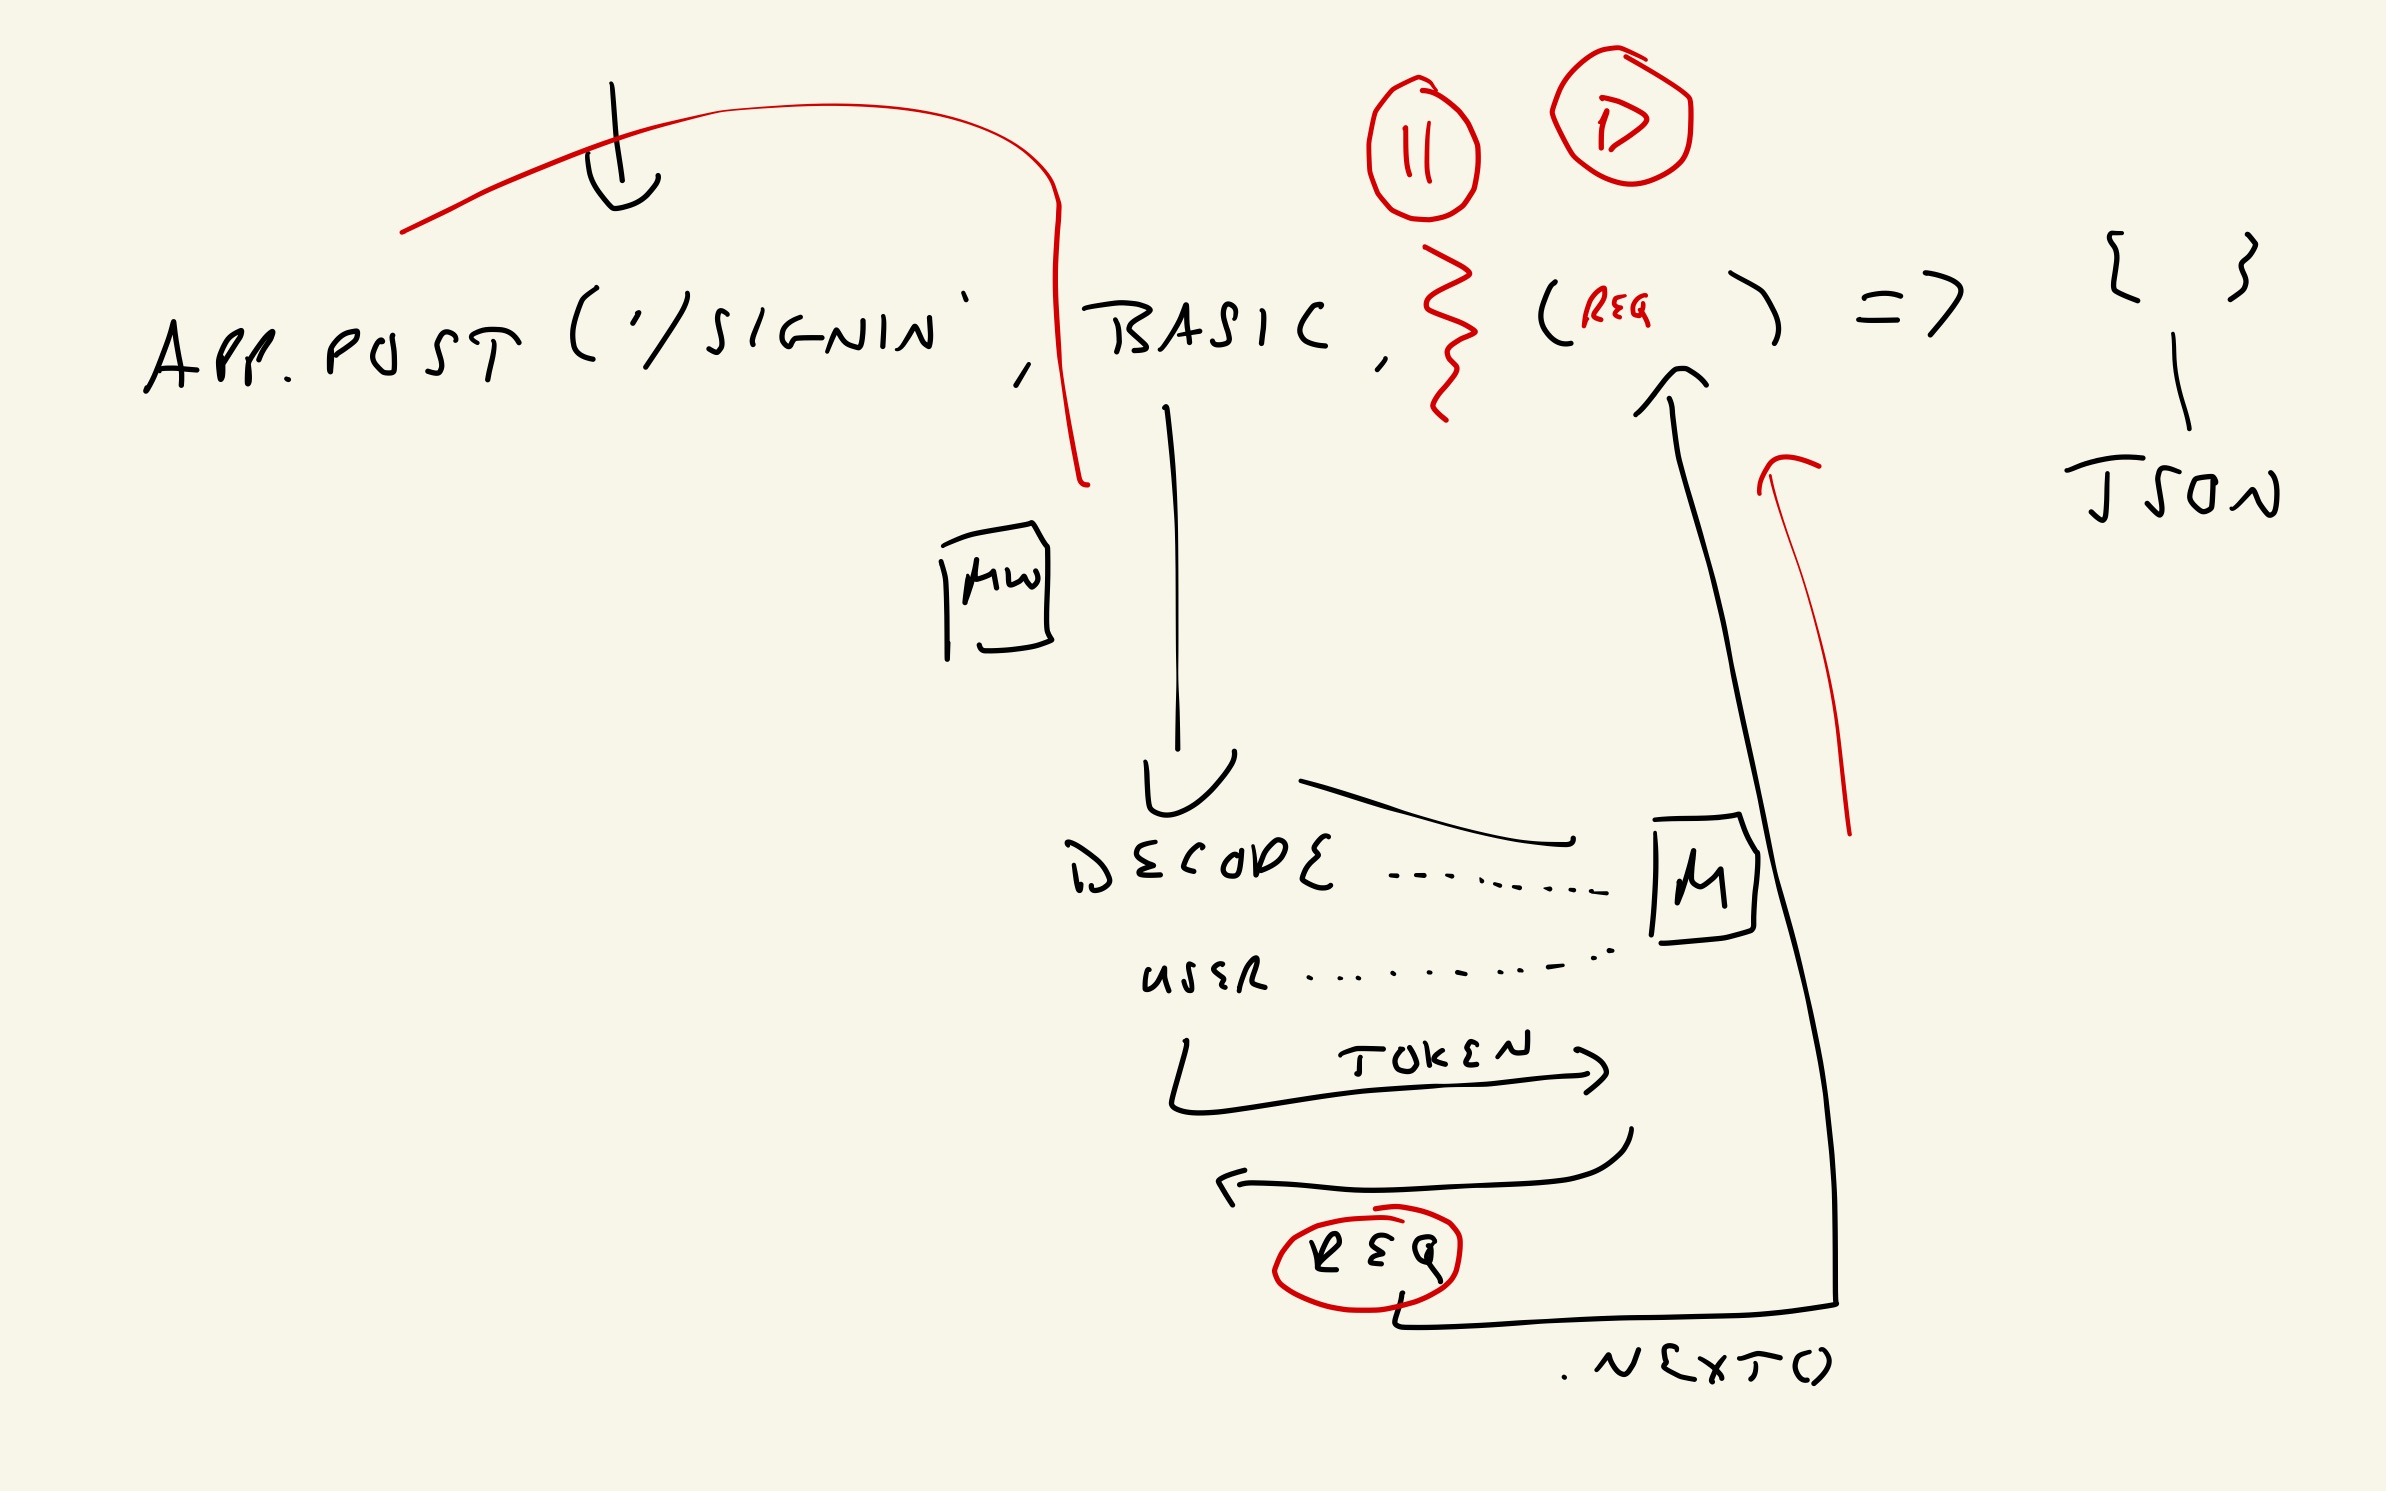 APP. POST ('/SIGNIN', BASIC, (REQ) => { }
JSON
MW
DECODE
M
USER
TOKEN
REQ
.NEXT()